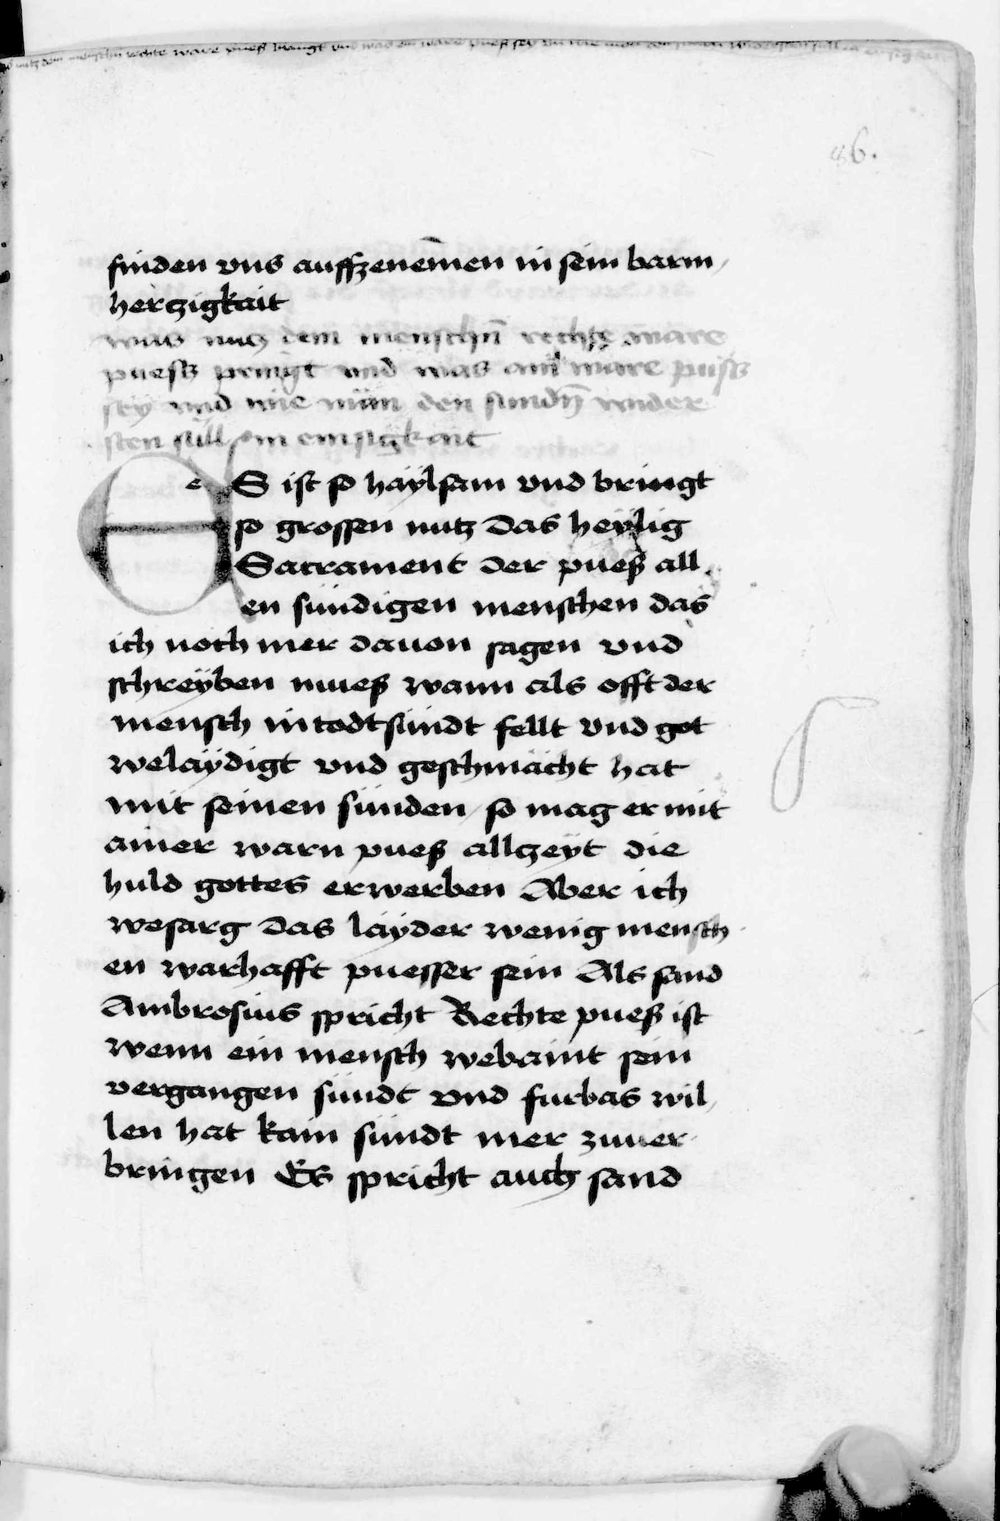 nutz dem menschn rechte ware puess bringt vnd was ein ware puess sey
86.
finden vns auffzenemen in sein barm
hertzigkait
was nutz dem menschn rechte ware
puesz pringt vnd was ain ware puesz
sey vnd wie man den sundn wider
sten sull in emsigkait
ES ist so haÿlsam vnd bringt
so grossen nutz das heylig
Sacrament der puess all
en sündigen menschen das
ich noch mer dauon sagen vnd
schreÿben muess wann als offt der
mensch in todtsündt fellt vnd got
welaÿdigt vnd geschmächt hat
mit seinen sünden / so mag er mit
ainer warn puess allzeyt die
huld gottes erwerben Aber ich
wesarg das laÿder wenig mensch
en warhafft puesser sein Als sand
Ambrosius spricht Rechte puess ist
wenn ein mensch webaint sein
vergangen sündt vnd furbas wil
len hat kain sündt mer zuuer
bringen Es spricht auch sand